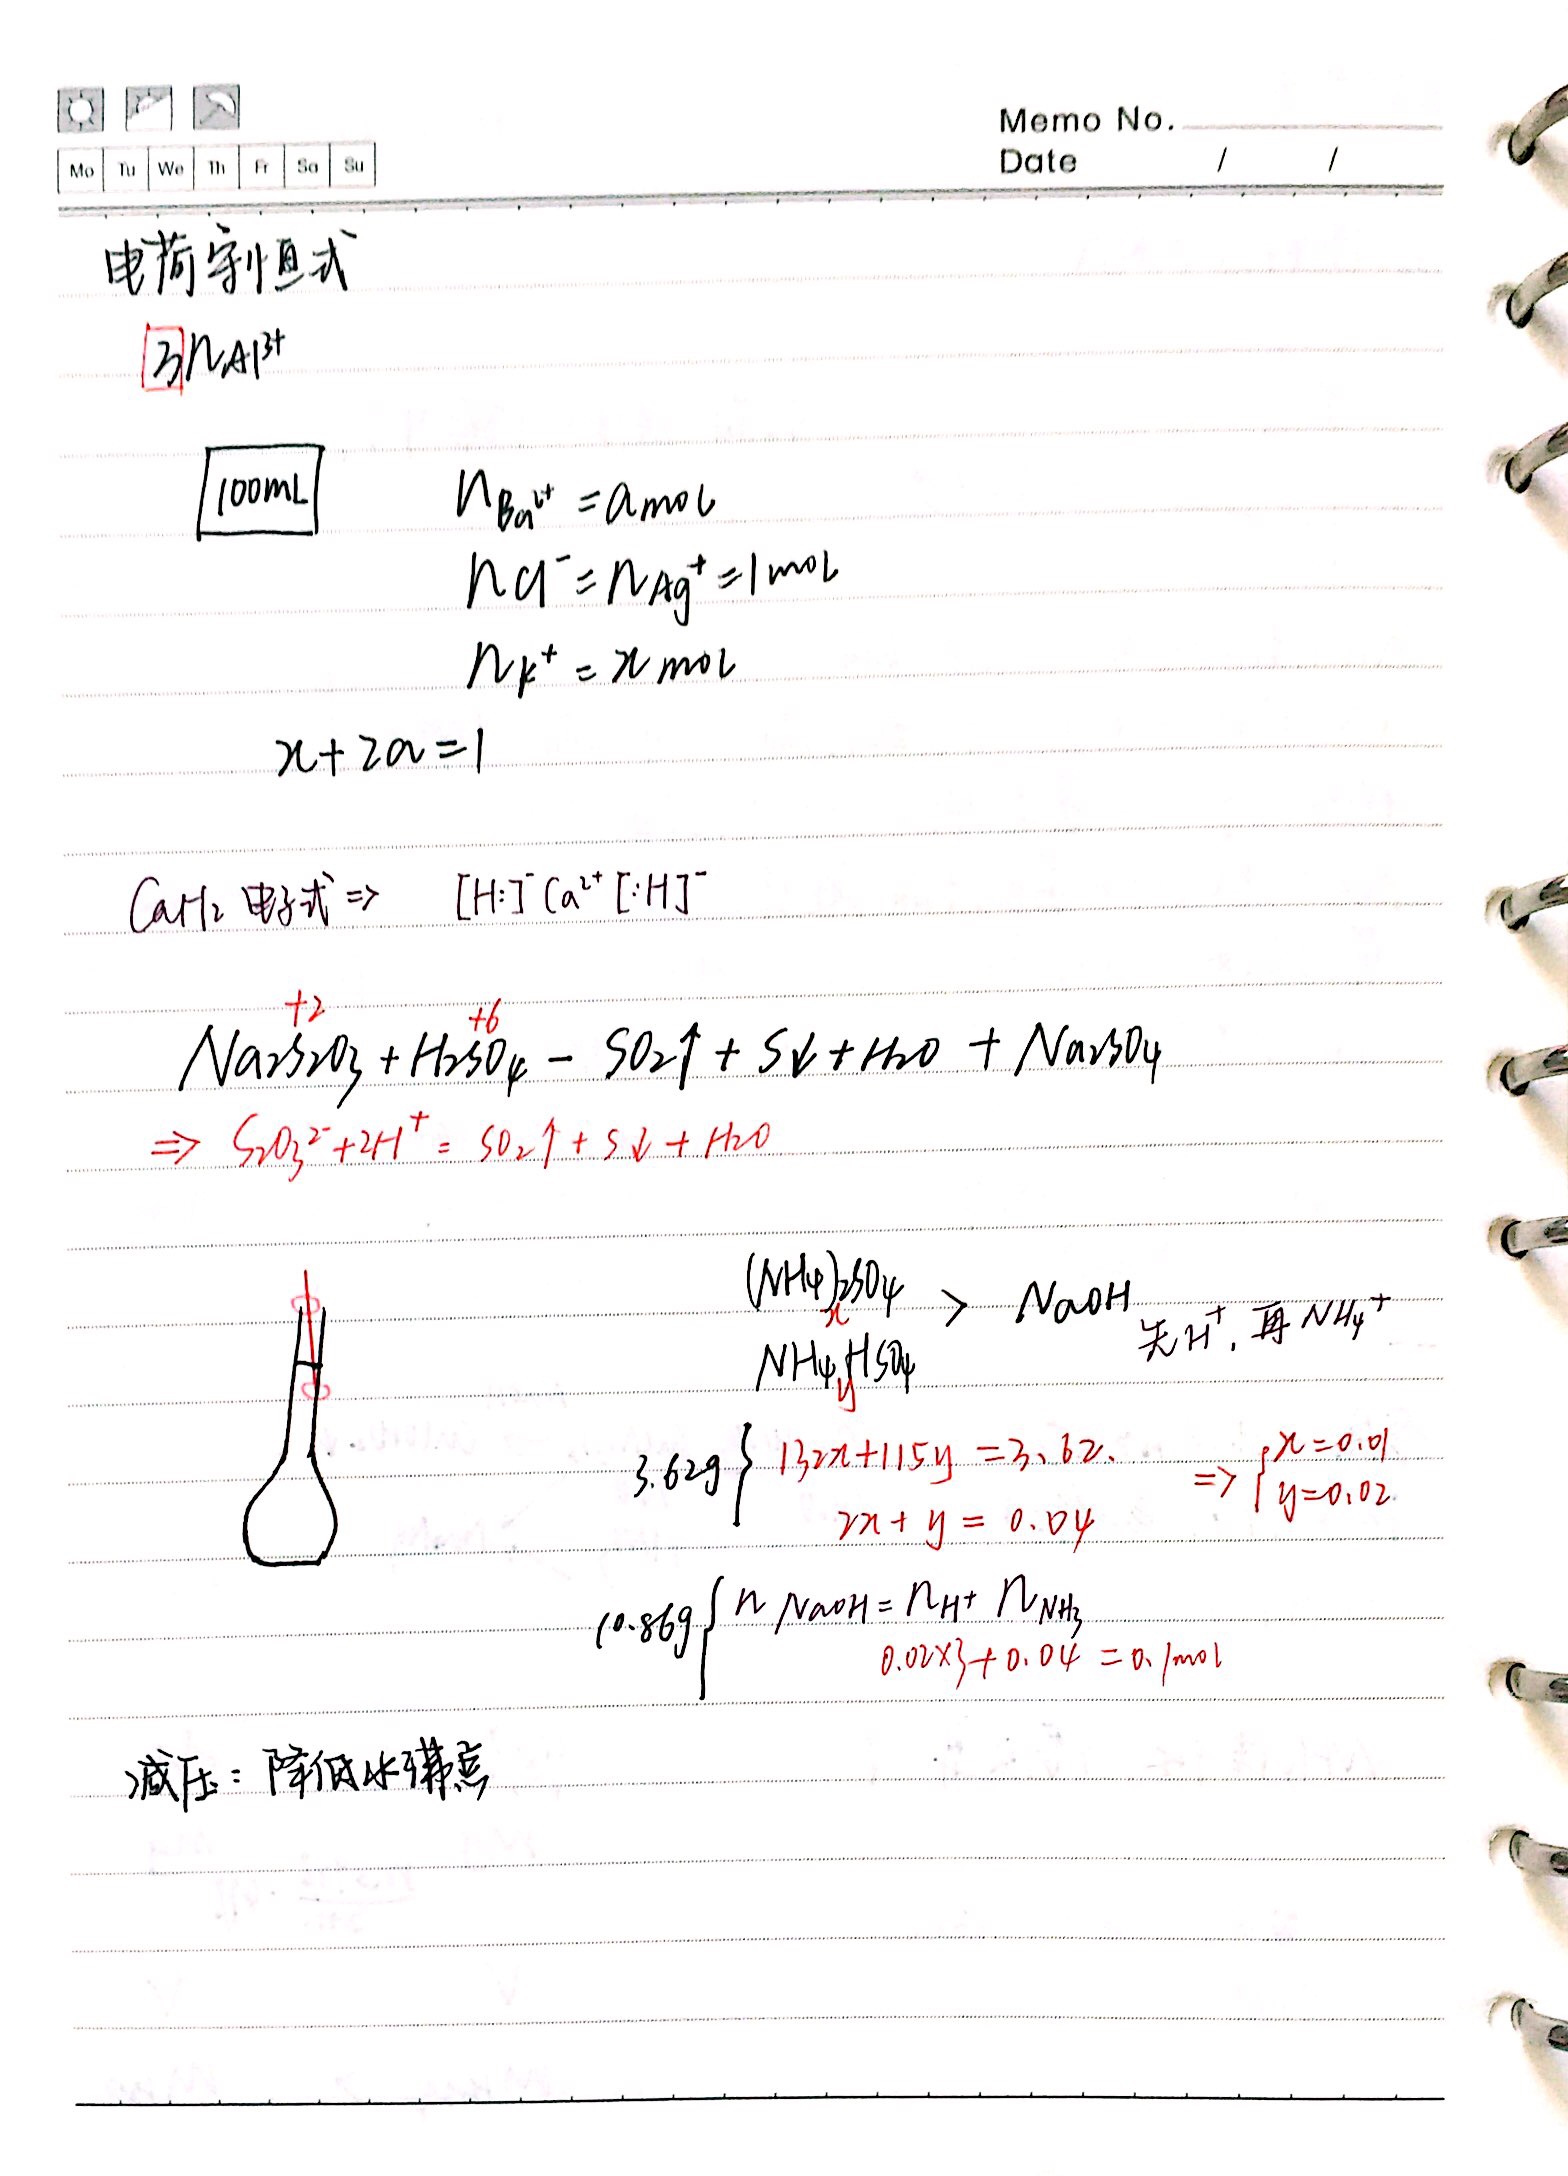 Memo No.
Mo Tu We Th Fr Sa Su
Date / /
电荷守恒式
3nAl³⁺
100mL
nBa²⁺ = a mol
nCl⁻ = nAg⁺ = 1 mol
nK⁺ = x mol
x + 2a = 1
CaH₂ 电子式 => [H:]⁻ Ca²⁺ [:H]⁻
+2 +6
Na₂S₂O₃ + H₂SO₄ — SO₂↑ + S↓ + H₂O + Na₂SO₄
=> S₂O₃²⁻ + 2H⁺ = SO₂↑ + S↓ + H₂O
(NH₄)₂SO₄
x
> NaOH 先H⁺, 再NH₄⁺
NH₄HSO₄
y
3.62g { 132x + 115y = 3.62.
2x + y = 0.04
=> { x = 0.01
y = 0.02
10.86g { n NaOH = nH⁺ nNH₃
0.02×3 + 0.04 = 0.1mol
减压: 降低水沸点